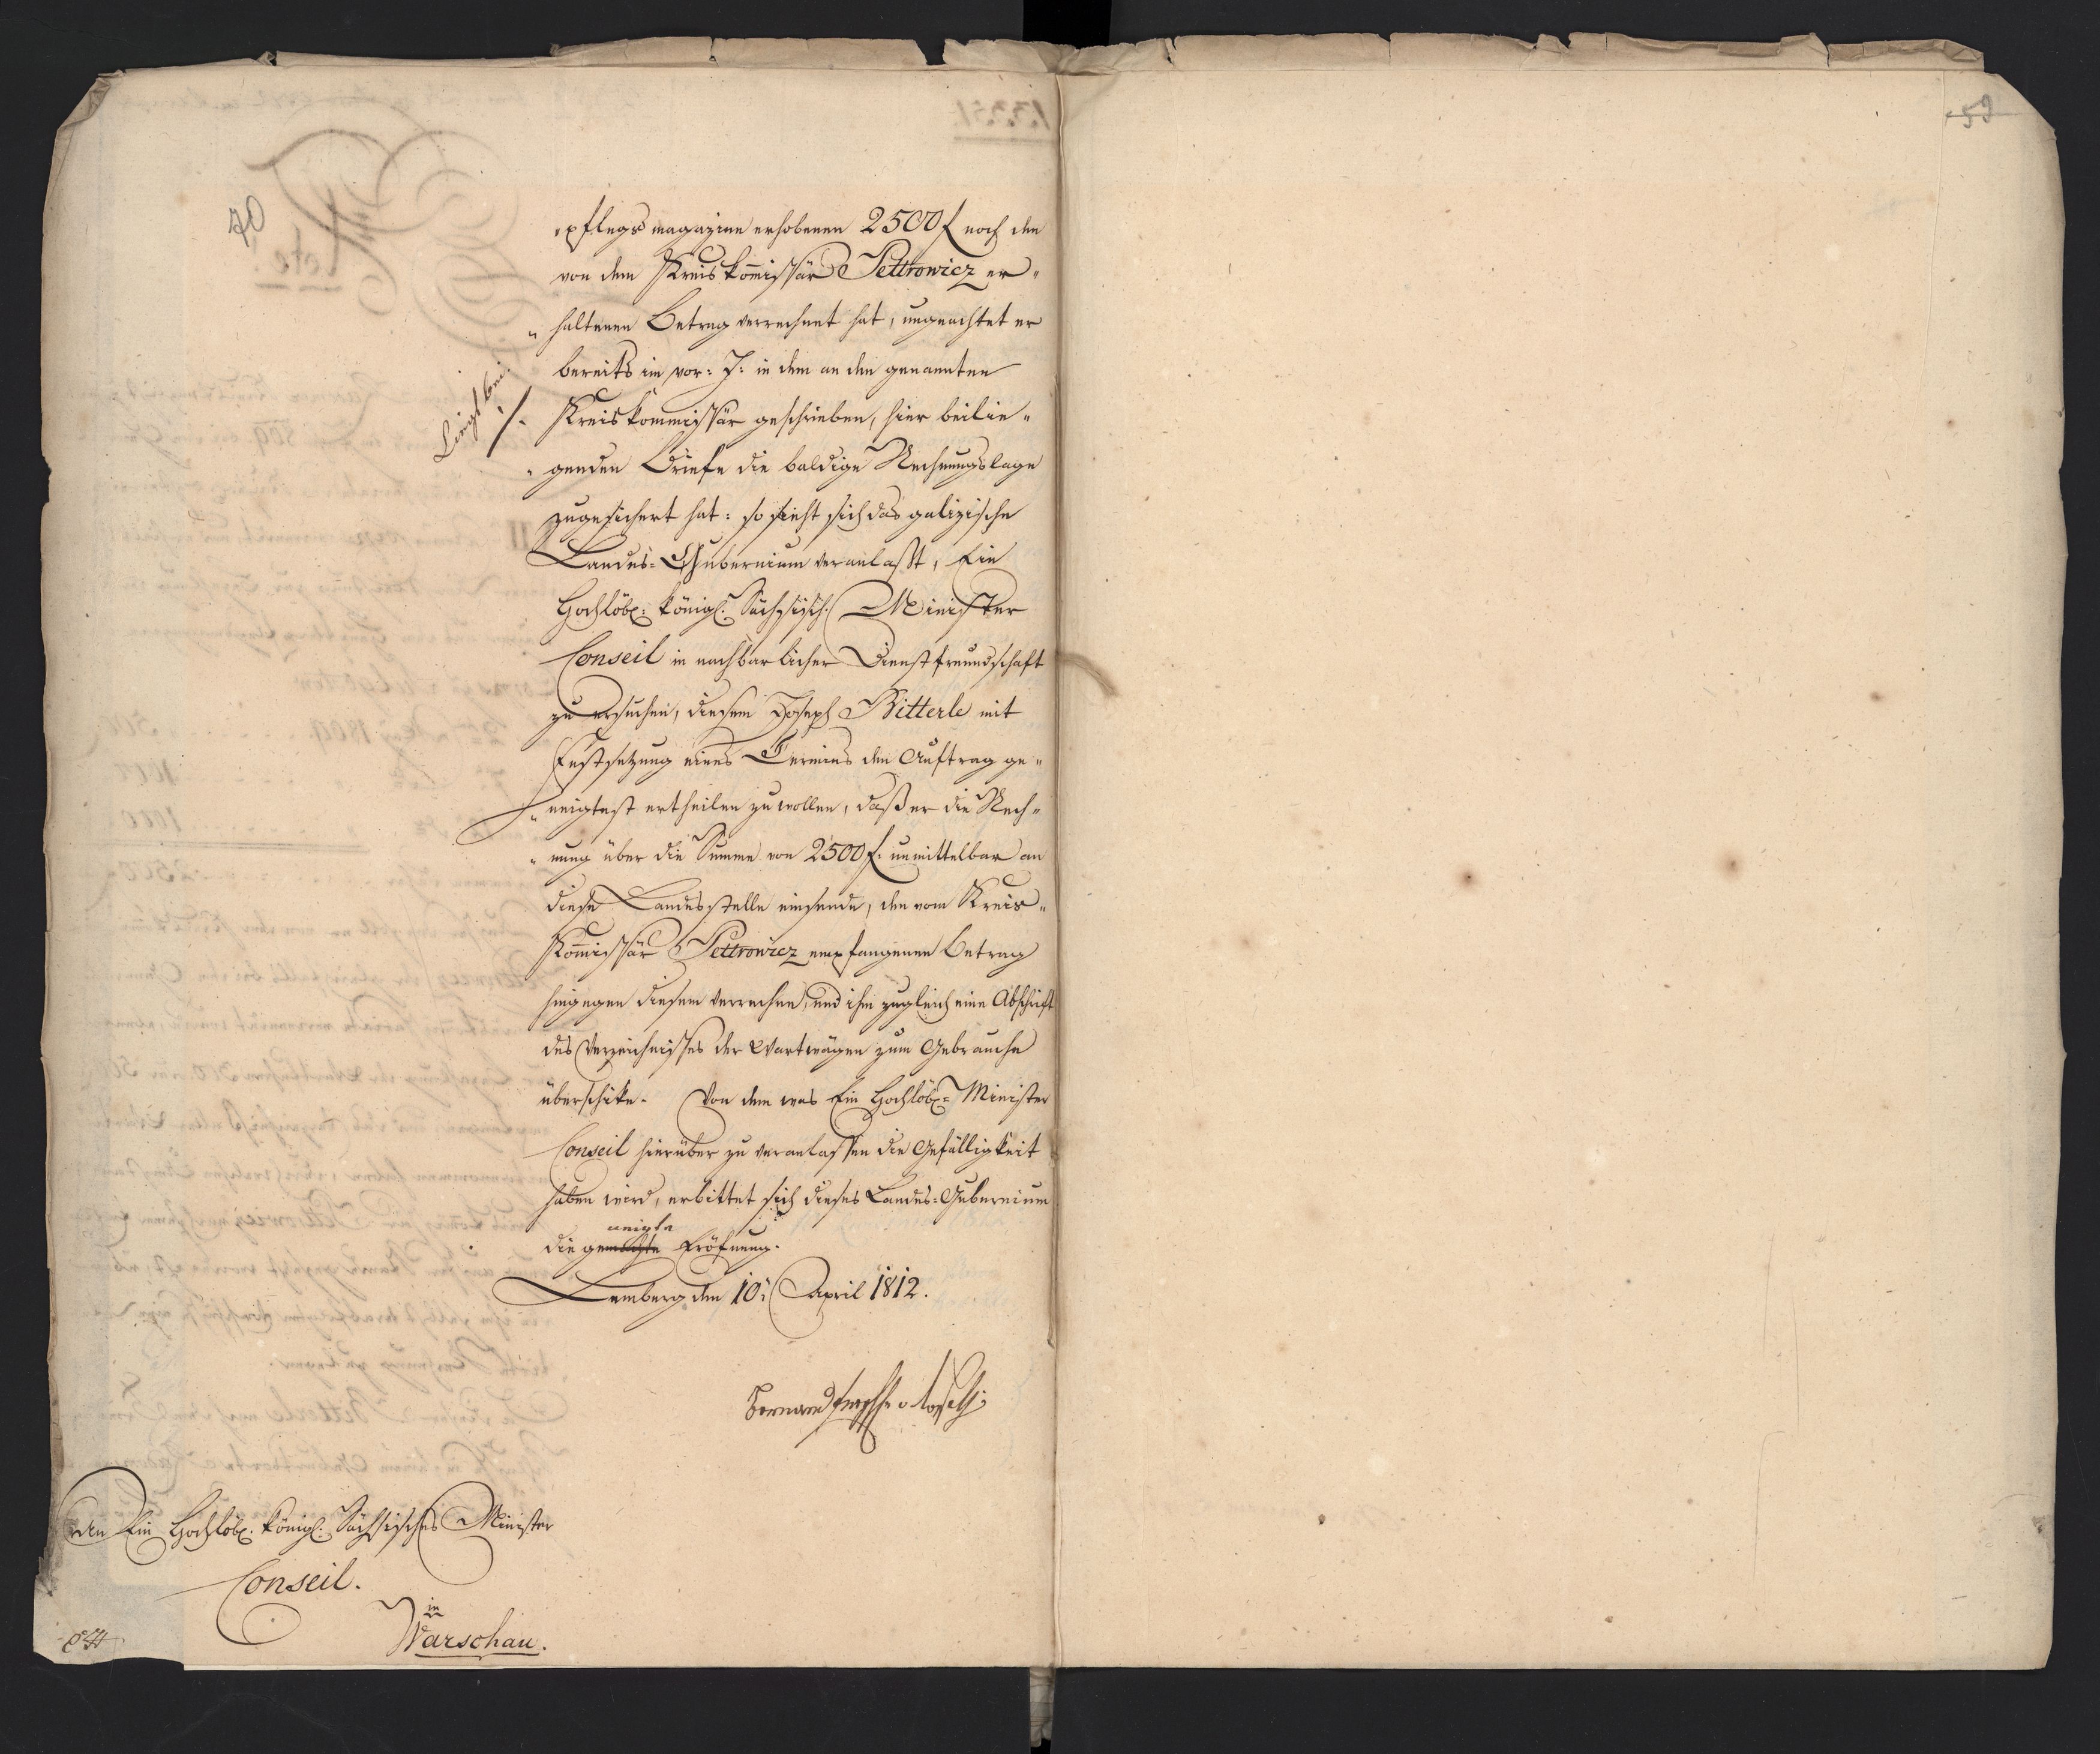 59
40
"pflegsmagazine erhobenen 2500 f noch den
von dem Kreiskom̄issär Pettrowicz er"
"haltenen Betrag verrechnet hat, ungeachtet er
bereits im vor: J: in dem an den genannten
Liegt bei.
./. Kreiskommissär geschrieben, hier beilie"
"genden Briefe die baldige Rechnungslage
zugesichert hat: so sieht sich das galizische
Landes-Gubernium veranlaßt, Ein
Hochlöbl: königl: Sächsisch: Minister
Conseil in nachbarlicher Dienstfreundschaft
zu ersuchen, diesem Joseph Bitterle mit
Festsetzung eines Termins den Auftrag ge"
"neigtest ertheilen zu wollen, daß er die Rech"
"nung über die Summe von 2500 f: unmittelbar an
diese Landesstelle einsende, den vom Kreis"
Kom̄issär Pettrowicz empfangenen Betrag
hingegen diesem verrechne, und ihm zugleich eine Abschrift
des Verzeichnisses der Wartwägen zum Gebrauche
überschike. Von dem was Ein Hochlöbl: Minister
Conseil hierüber zu veranlassen die Gefälligkeit
haben wird, erbittet sich dieses Landes-Gubernium
neigte
die gemachte Eröfnung.
Lemberg den 10: April 1812.
An Ein Hochlöbl. königl: Sächsisches Minister
Conseil.
in
Warschau.